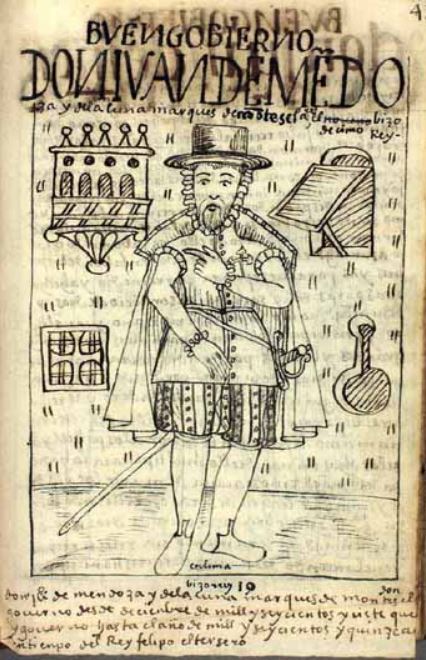 4
BVENGOBIERNO
DON IVAN DE MĒDO
za y de la luna marques de mōtescl˜ el noueno bizo
decimo Rey-
en lima
bizorrey 10
don ju˚ de mendoza y de la luna marques de montes cl
don
gouerno desde deciembre de mill y seycientos y ciete que
y gouerno hasta el año de mill y seycientos y quinze a
en tienpo del Rey felipo el tersero